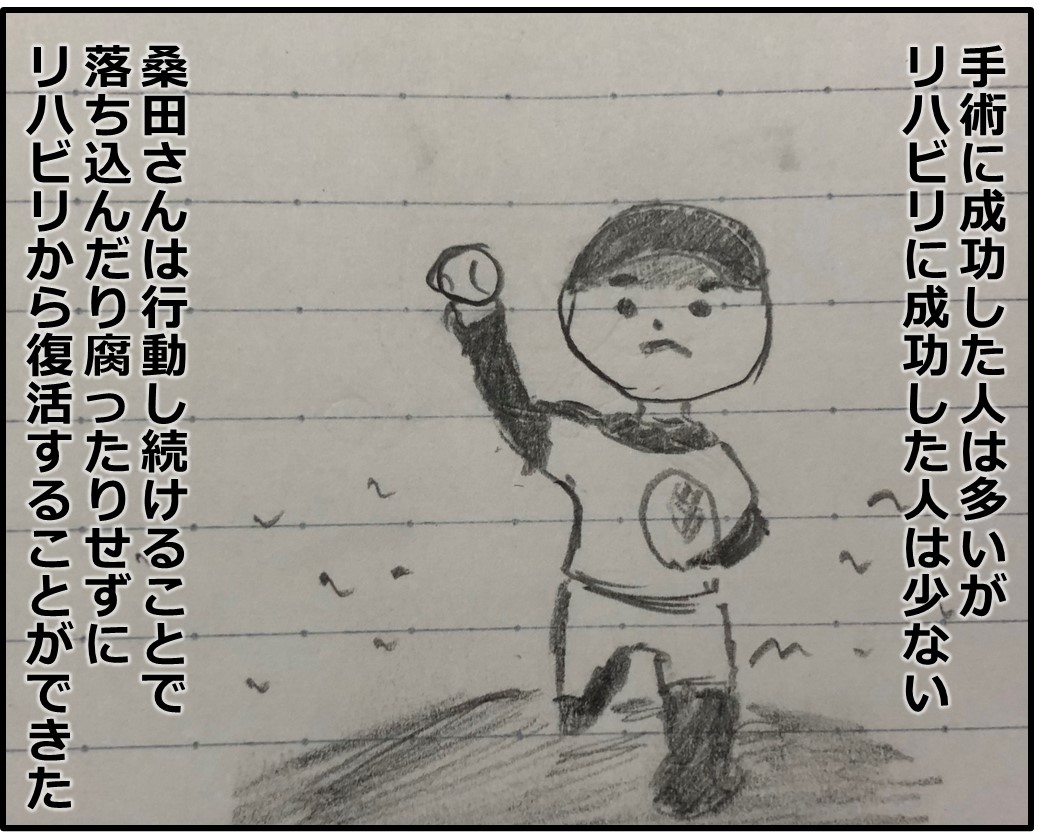 手術に成功した人は多いが
リハビリに成功した人は少ない
桑田さんは行動し続けることで
落ち込んだり腐ったりせずに
リハビリから復活することができた